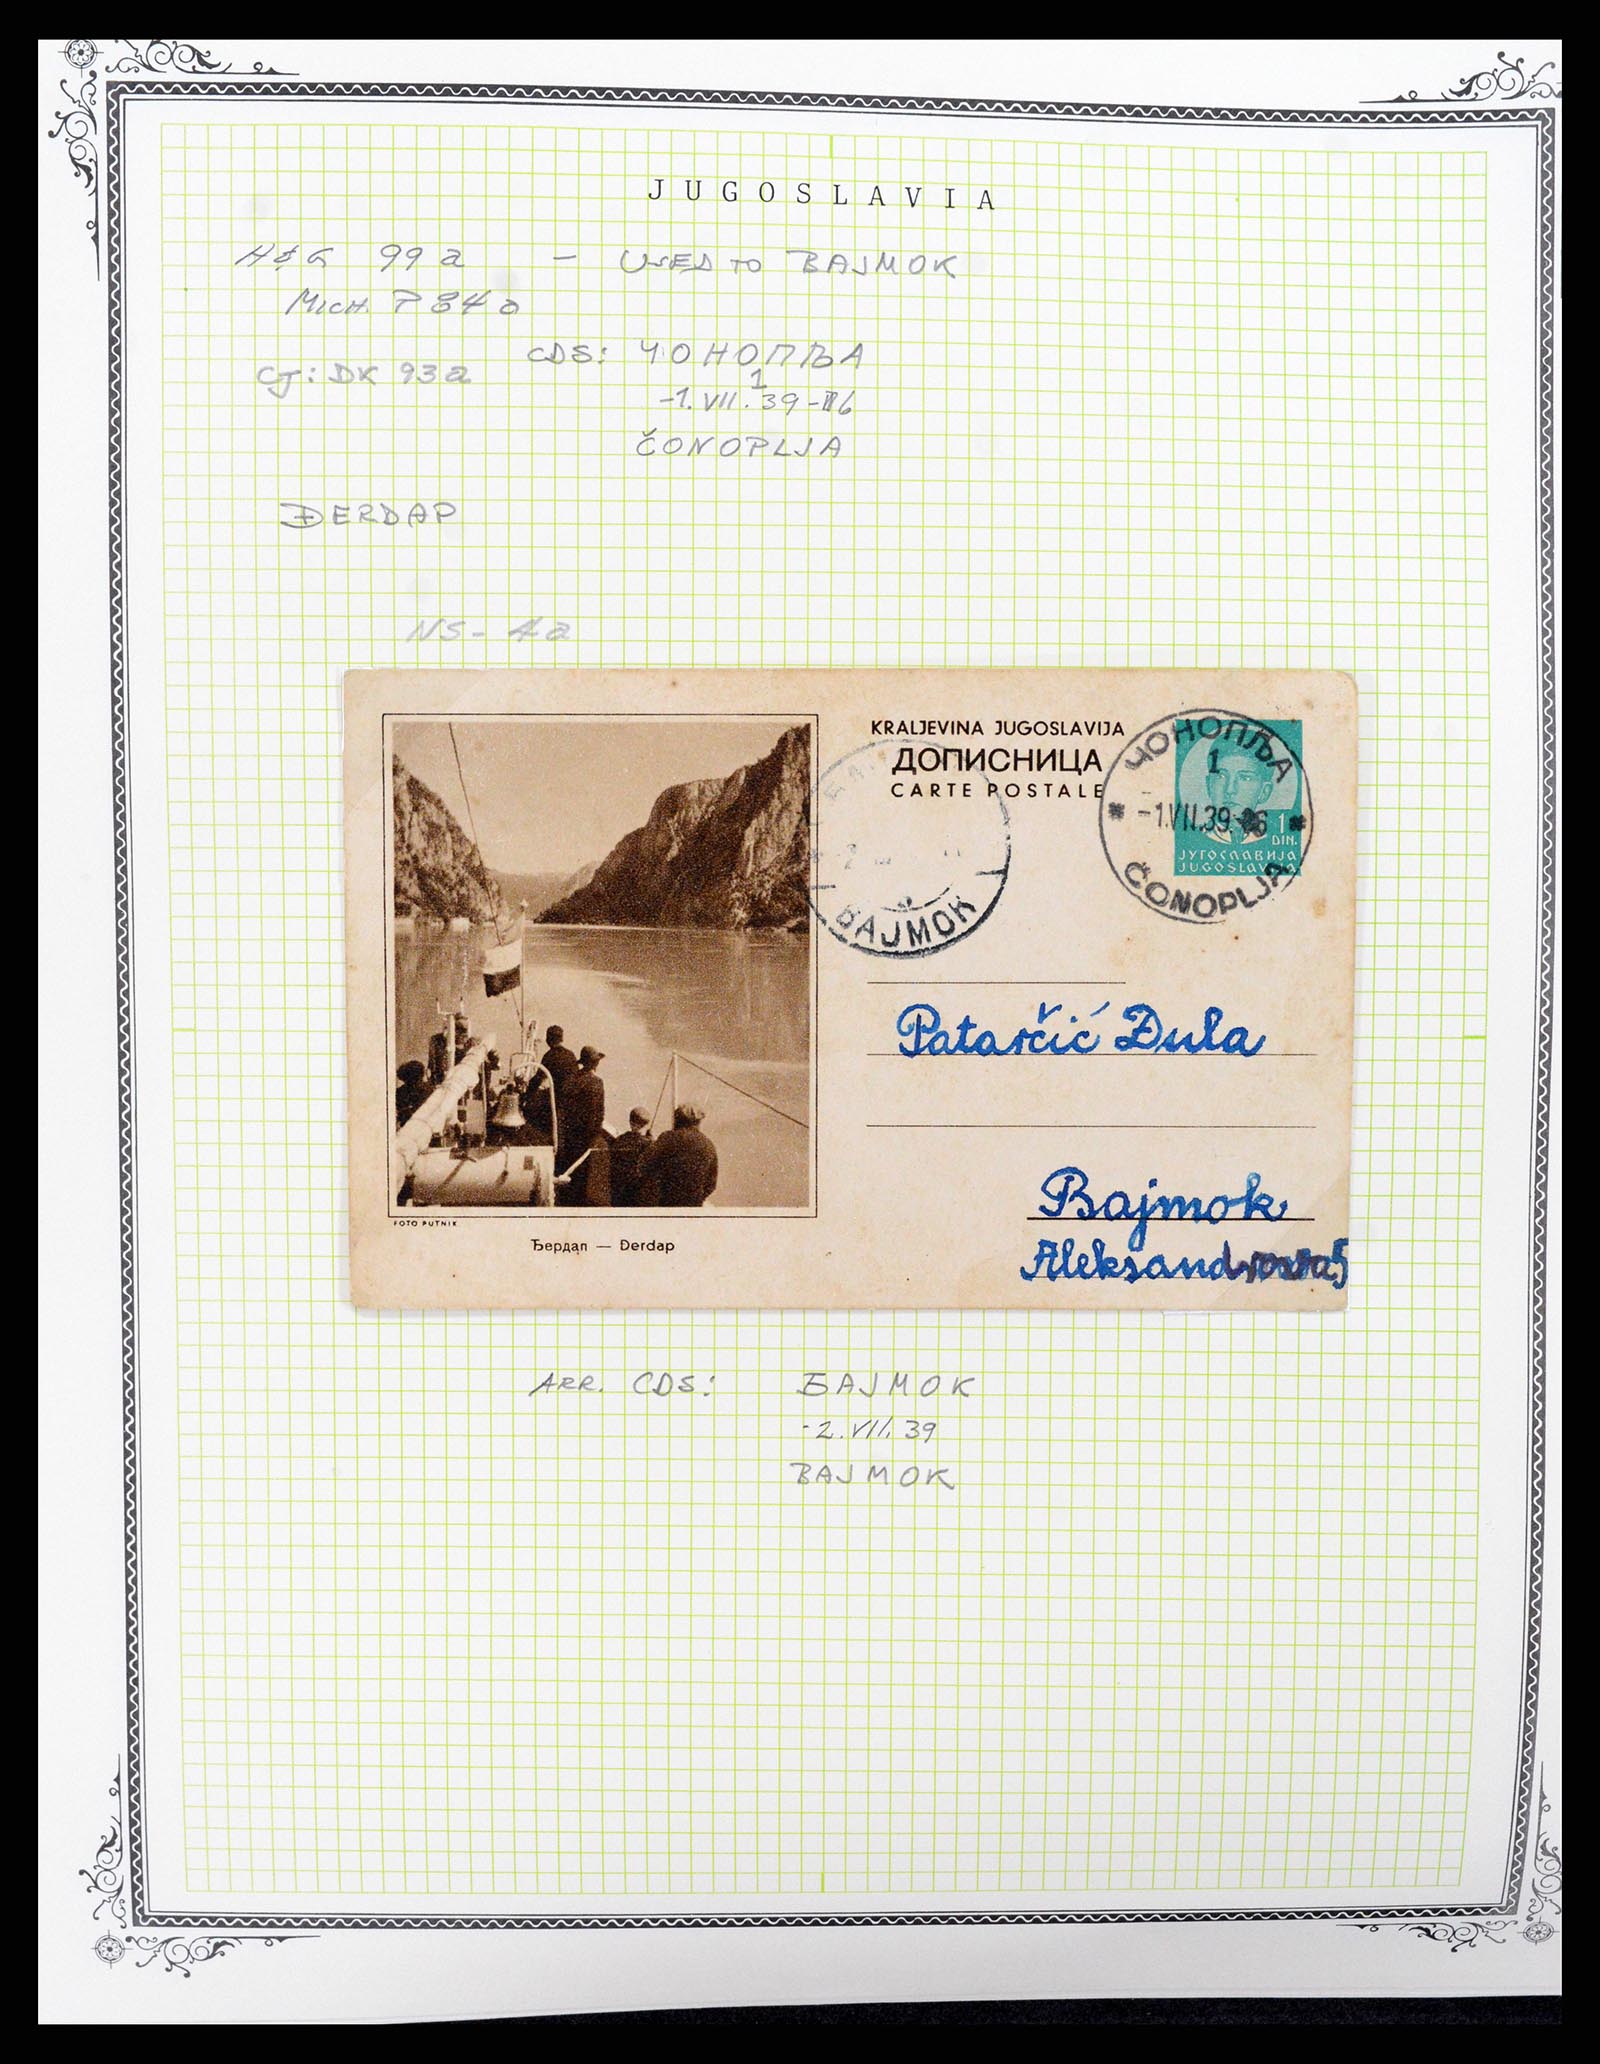 JUGOSLAVIA
H&G 99a - USED TO BAJMOK
MICH. P 84a
CDS: ЧОНОПЉА
CJ: DK 93a
1
-1.VII.39-16
ČONOPLJA
ĐERDAP
NS-4a
KRALJEVINA JUGOSLAVIJA
ДОПИСНИЦА
CARTE POSTALE
ЧОНОПЉА
1
-1.VII.39.
ČONOPLJA
1
DIN.
ЈУГОСЛАВИЈА
JUGOSLAVIJA
BAJMOK
Patarčić Đula
Bajmok
FOTO PUTNIK
Ђердап — Đerdap
ARR. CDS: БАЈМОК
-2.VII.39
BAJMOK